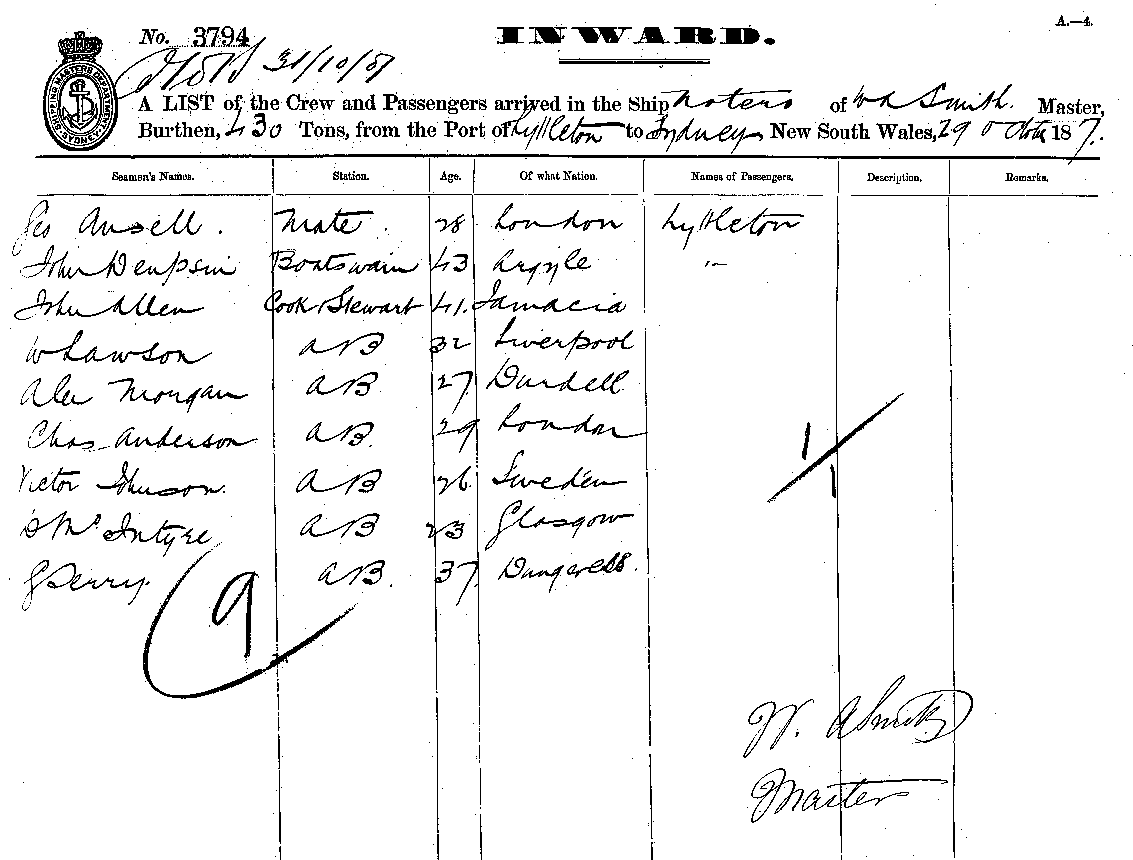 A.—4.
No. 3794
INWARD.
31/10/87
A LIST of the Crew and Passengers arrived in the Ship of W A Smith. Master,
Burthen, 430 Tons, from the Port of Lyttleton to Sydney New South Wales, 29 187.
Seamen's Names. Station. Age. Of what Nation. Names of Passengers. Description. Remarks.
Geo Ansell. Mate. 28 London Lyttleton
John Dempsin Boatswain 43 Argyle "
John Allen Cook & Stewart 41. Jamacia
W Lawson AB 32 Liverpool
Alex Morgan AB 27 Dundell
Chas Anderson AB. 29 London
Victor Johnson. AB 26 Sweden
D McIntyre AB 23 Glasgow
G Perry. AB. 37
9
1/1
W. A Smith
Master